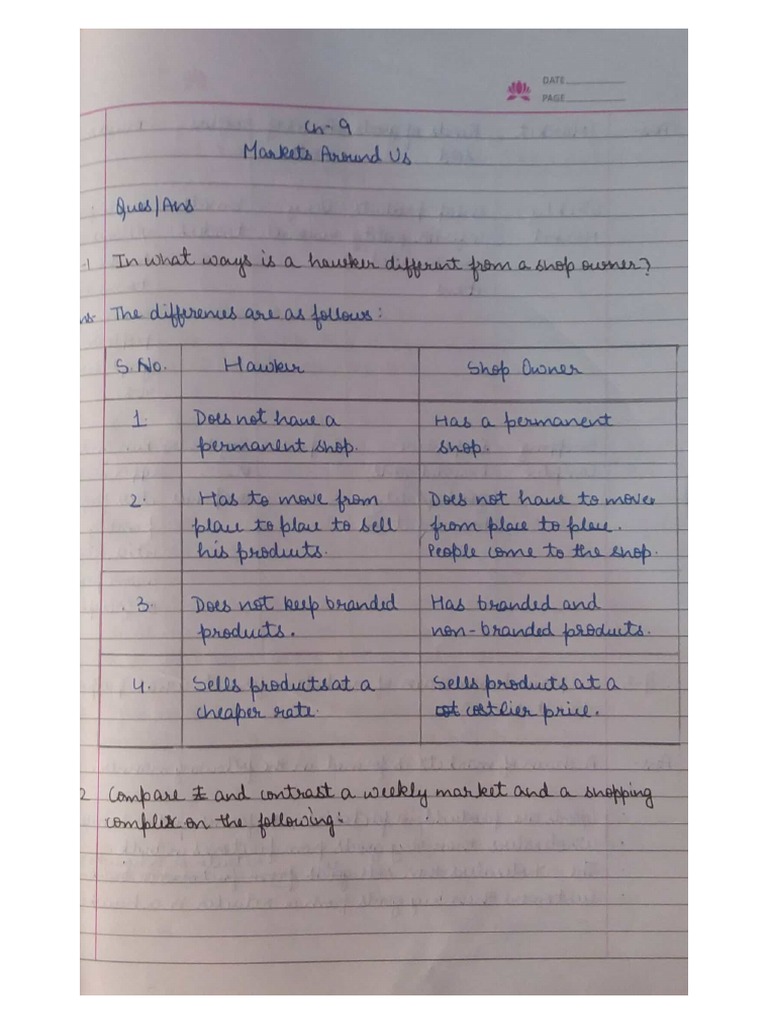 DATE
PAGE
Ch-9
Markets Around Us
Ques/Ans
1 In what ways is a hawker different from a shop owner?
ns. The differences are as follows:
S.No. Hawker Shop Owner
1. Does not have a Has a permanent
permanent shop. shop.
2. Has to move from Does not have to move
place to place to sell from place to place.
his products. People come to the shop.
3. Does not keep branded Has branded and
products. non-branded products.
4. Sells products at a Sells products at a
cheaper rate. costlier price.
2 Compare and contrast a weekly market and a shopping
complex on the following: